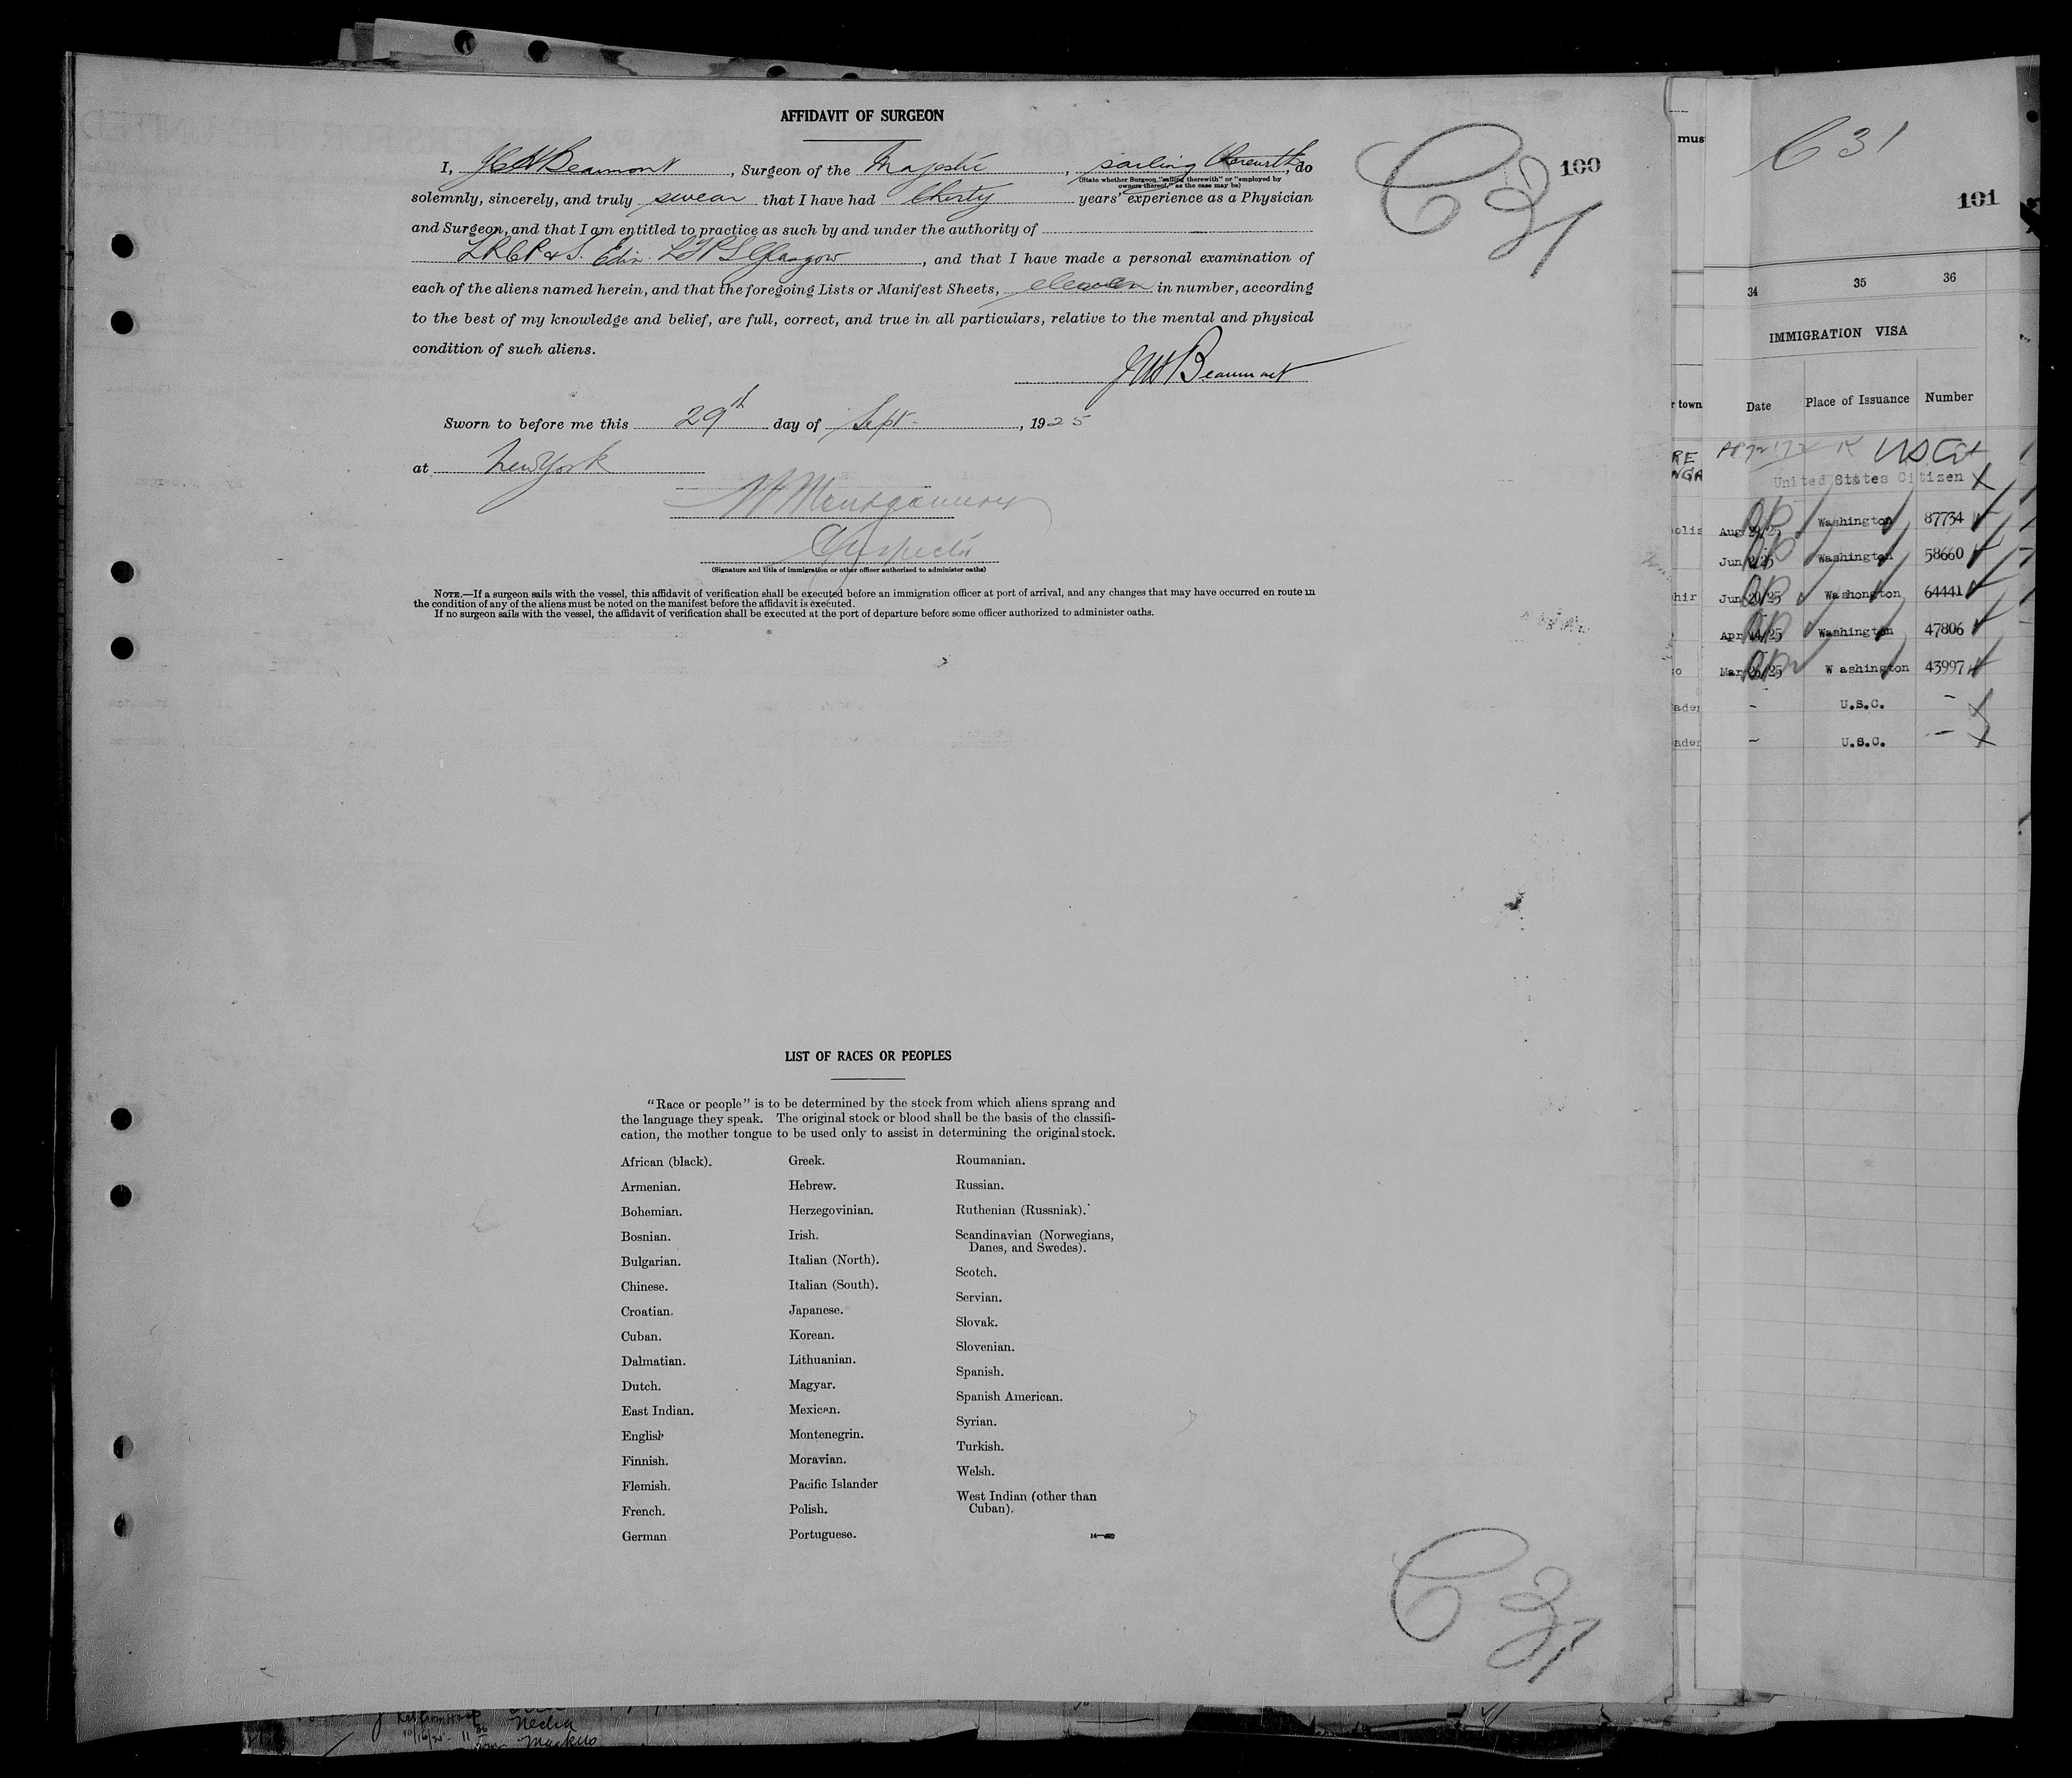 AFFIDAVIT OF SURGEON
C 31
100
I, Beaumont, Surgeon of the Majestic, sailing therewith, do
(State whether Surgeon "sailing therewith" or "employed by
owners thereof," as the case may be)
solemnly, sincerely, and truly swear that I have had thirty years' experience as a Physician
and Surgeon, and that I am entitled to practice as such by and under the authority of
LRCP & S. Edin. LFPS Glasgow, and that I have made a personal examination of
each of the aliens named herein, and that the foregoing Lists or Manifest Sheets, eleven in number, according
to the best of my knowledge and belief, are full, correct, and true in all particulars, relative to the mental and physical
condition of such aliens.
Beaumont
Sworn to before me this 29th day of Sept., 1925
at New York
Montgomery
Inspector
(Signature and title of immigration or other officer authorized to administer oaths)
NOTE.—If a surgeon sails with the vessel, this affidavit of verification shall be executed before an immigration officer at port of arrival, and any changes that may have occurred en route in
the condition of any of the aliens must be noted on the manifest before the affidavit is executed.
If no surgeon sails with the vessel, the affidavit of verification shall be executed at the port of departure before some officer authorized to administer oaths.
LIST OF RACES OR PEOPLES
"Race or people" is to be determined by the stock from which aliens sprang and
the language they speak. The original stock or blood shall be the basis of the classifi-
cation, the mother tongue to be used only to assist in determining the original stock.
African (black).
Armenian.
Bohemian.
Bosnian.
Bulgarian.
Chinese.
Croatian.
Cuban.
Dalmatian.
Dutch.
East Indian.
English
Finnish.
Flemish.
French.
German
Greek.
Hebrew.
Herzegovinian.
Irish.
Italian (North).
Italian (South).
Japanese.
Korean.
Lithuanian.
Magyar.
Mexican.
Montenegrin.
Moravian.
Pacific Islander
Polish.
Portuguese.
Roumanian.
Russian.
Ruthenian (Russniak).
Scandinavian (Norwegians,
Danes, and Swedes).
Scotch.
Servian.
Slovak.
Slovenian.
Spanish.
Spanish American.
Syrian.
Turkish.
Welsh.
West Indian (other than
Cuban).
C 31
must
r town
C 31
101
34 35 36
IMMIGRATION VISA
Date Place of Issuance Number
United States Citizen
Aug Washington 87734
Jun Washington 58660
Jun 20/25 Washongton 64441
Apr 14/25 Washington 47806
Mar 26/25 W ashington 43997
- U.S.C. -
- U.S.C. -